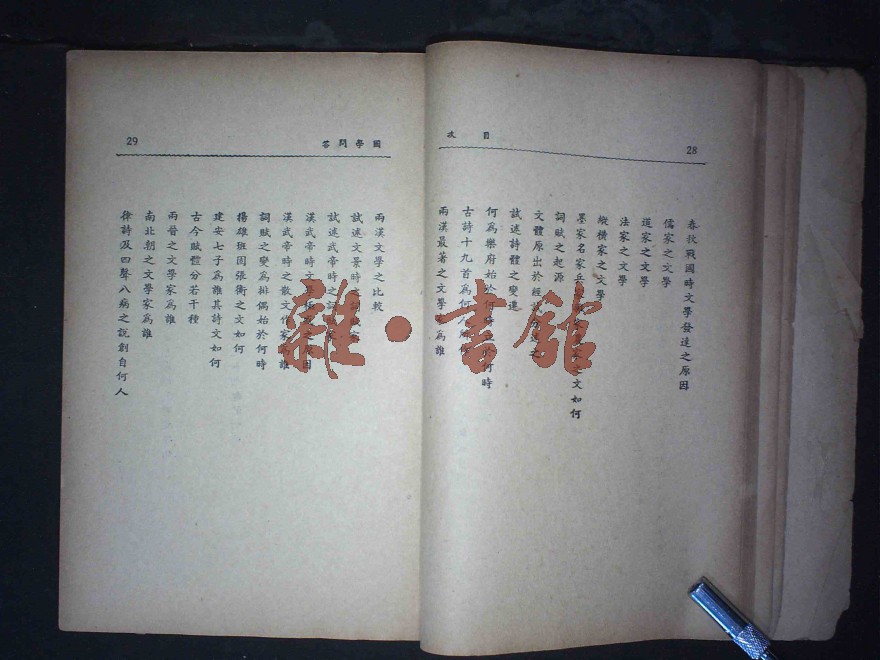 28
目次
春秋戰國時文學發達之原因
儒家之文學
道家之文學
法家之文學
縱橫家之文學
墨家名家兵家之文如何
詞賦之起源
文體原出於經
試述詩體之變遷
何為樂府始於何時
古詩十九首為何
兩漢最著之文學家為誰
國學問答
29
兩漢文學之比較
試述文景時之
試述武帝時之
漢武帝時文學
漢武帝時之散文作家為誰
詞賦之變為排偶始於何時
揚雄班固張衡之文如何
建安七子為誰其詩文如何
古今賦體分若干種
兩晉之文學家為誰
南北朝之文學家為誰
律詩及四聲八病之說創自何人
雜·書館